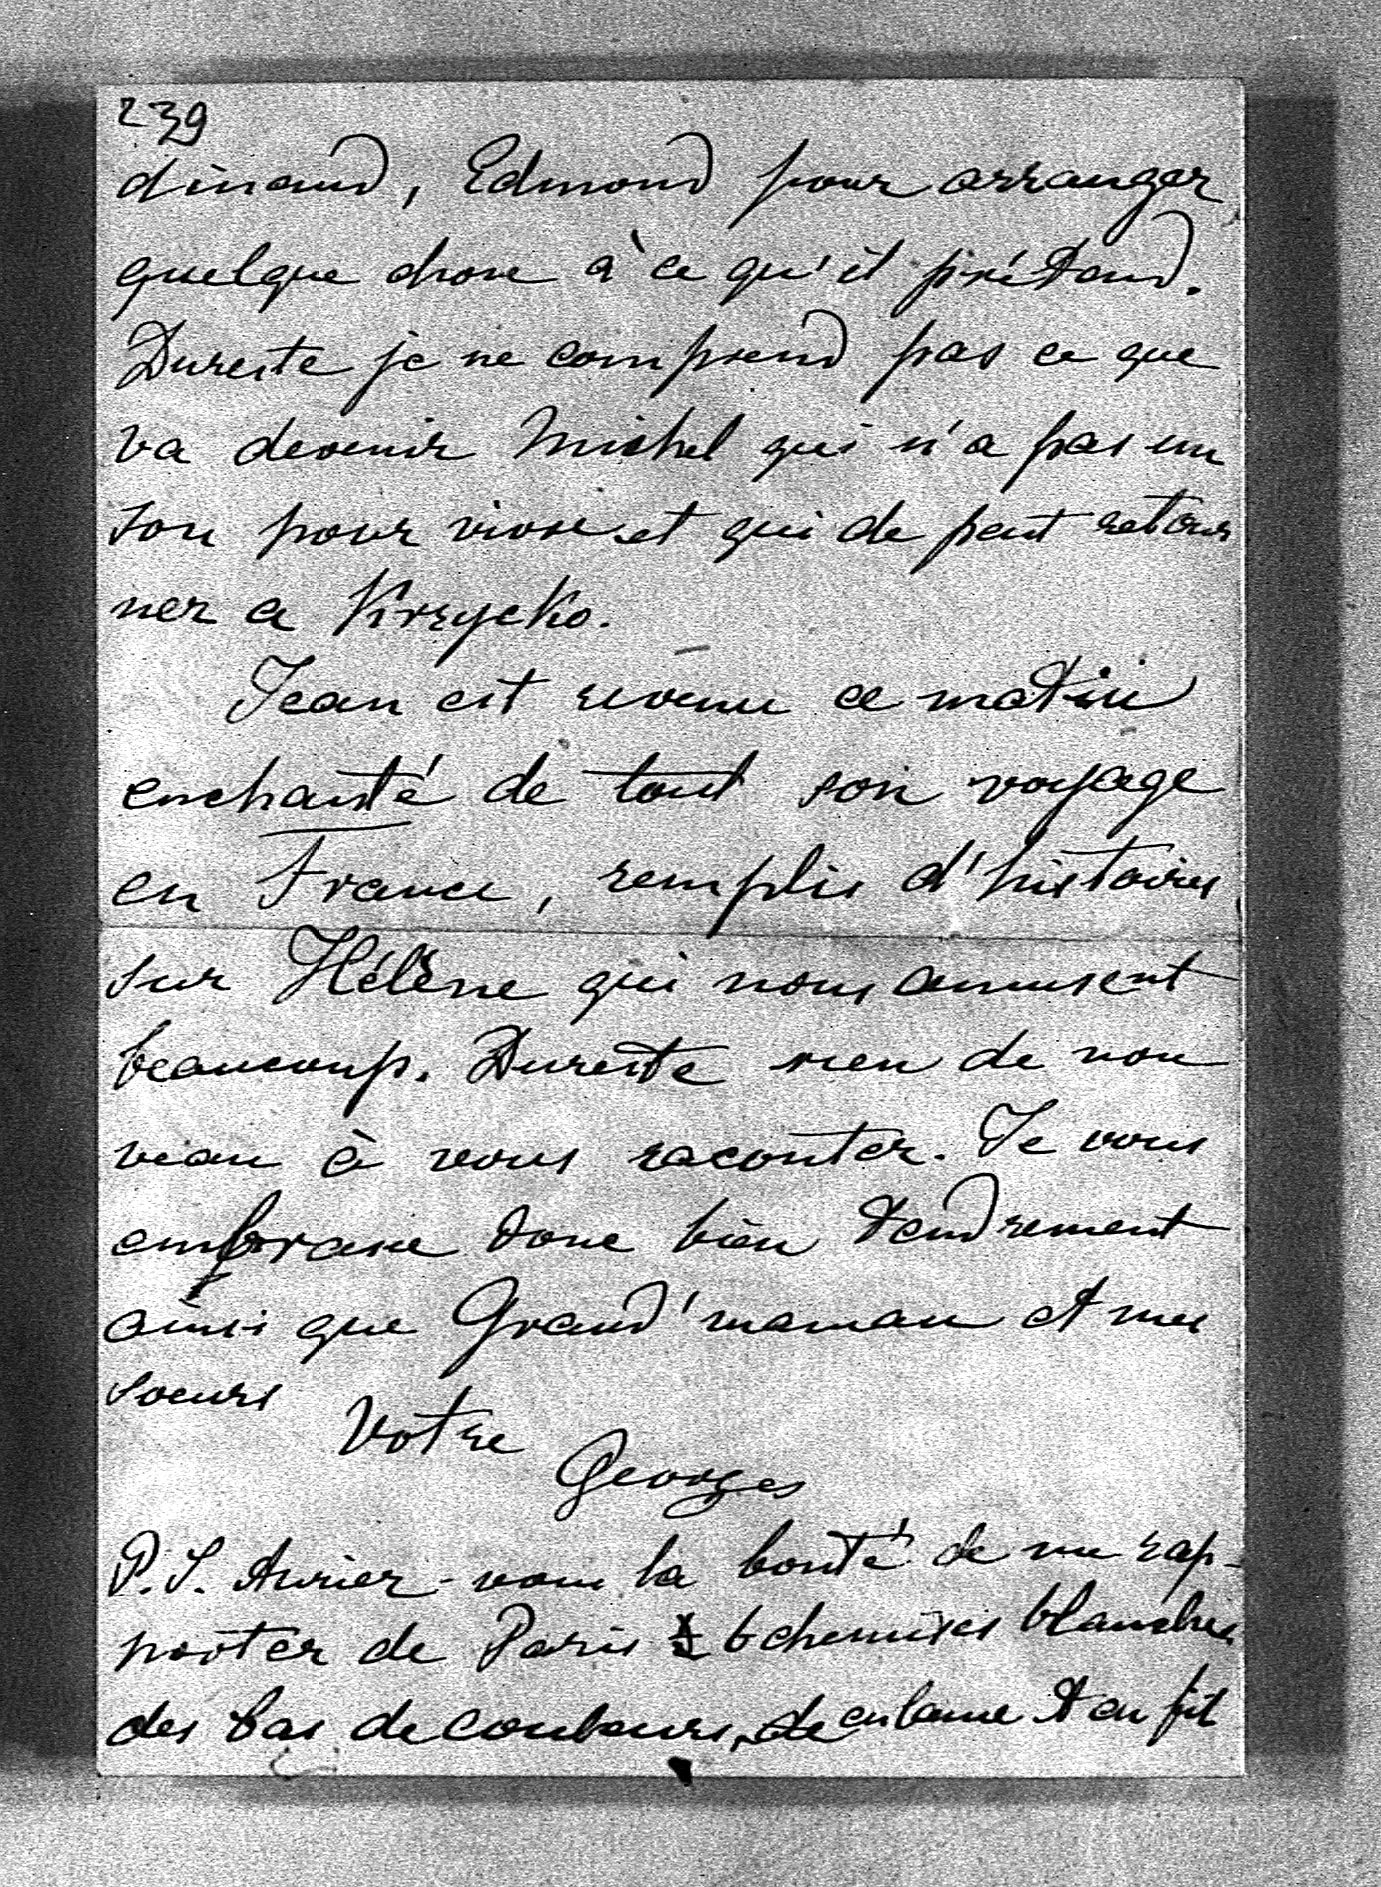 239
dinand, Edmond pour arranger
quelque chose à ce qu'il prétand.
Dureste je ne comprend pas ce que
va devenir Michel qui n'a pas un
sou pour vivre et qui de peut retour
ner a Krzycko.
Jean est revenu ce matin
enchanté de tout son voyage
en France, remplis d'histoires
sur Hélène qui nous amusent
beaucoup. Dureste rien de nou
veau à vous raconter. Je vous
embrasse donc bien tendrement
ainsi que Grand'maman et mes
soeurs
Votre
Georges
P.S. Auriez-vous la bonté de me rap-
porter de Paris 6 chemises blanches
des bas de couleurs, en laine et en fil